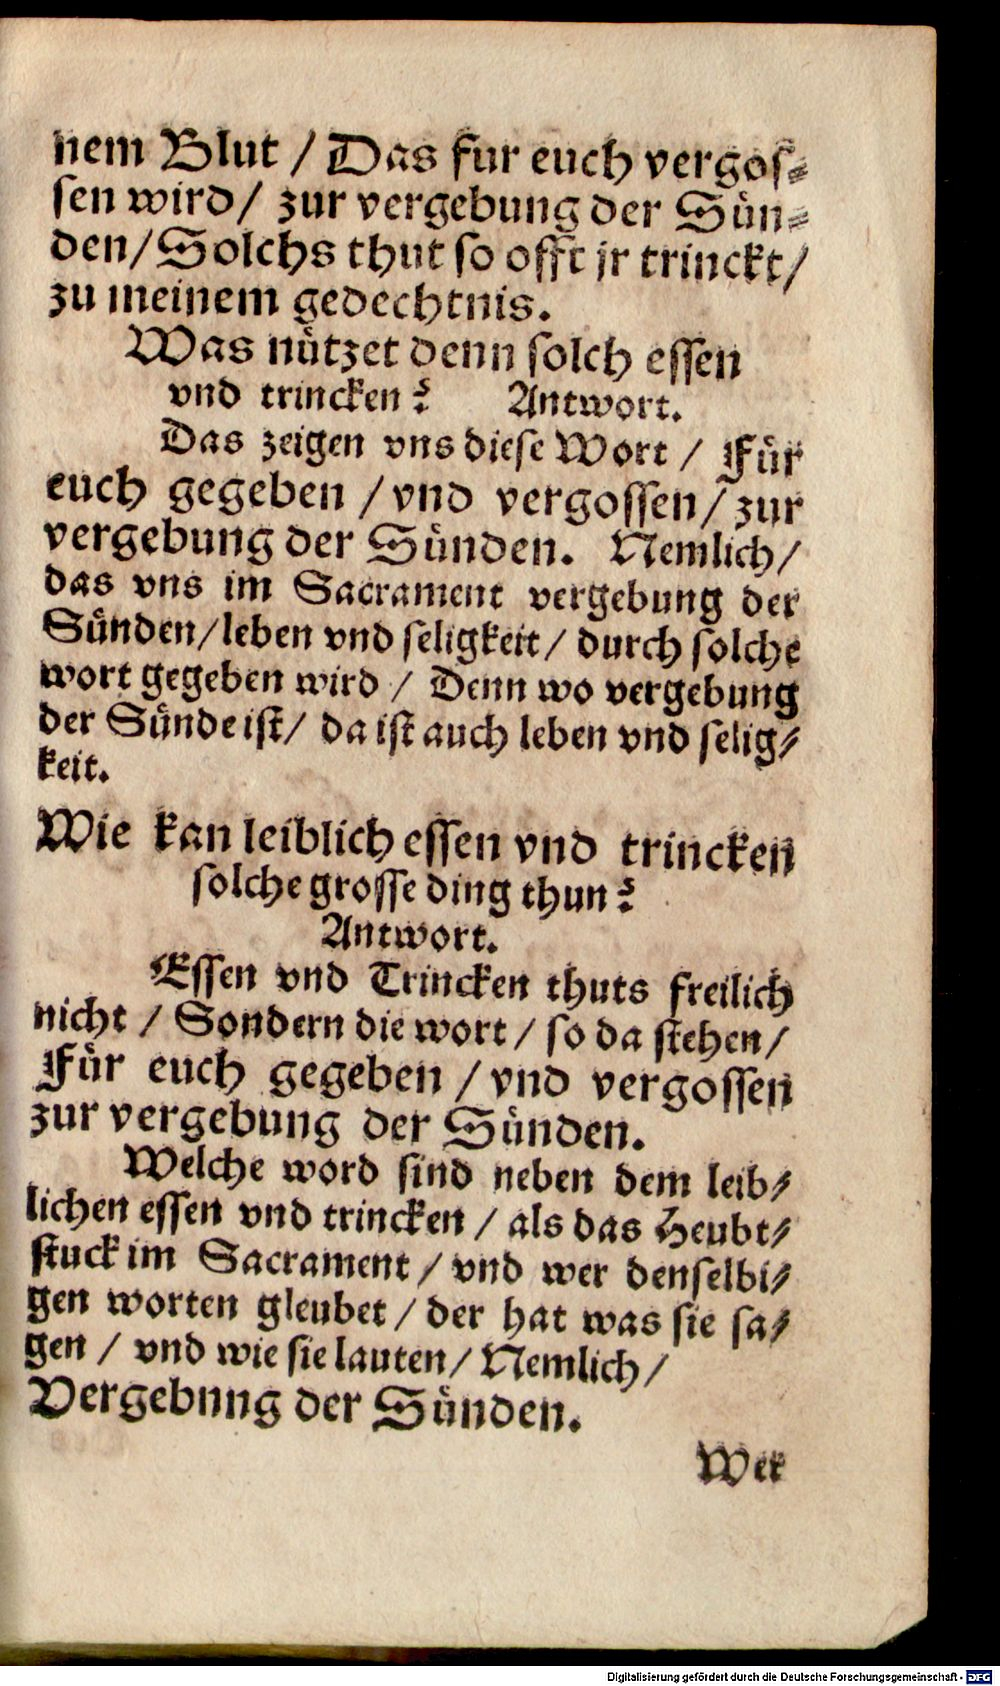 nem Blut / Das fur euch vergos⸗
sen wird / zur vergebung der Sün⸗
den / Solchs thut so offt jr trinckt /
zu meinem gedechtnis.
Was nützet denn solch essen
vnd trincken? Antwort.
Das zeigen vns diese Wort / Für
euch gegeben / vnd vergossen / zur
vergebung der Sünden. Nemlich /
das vns im Sacrament vergebung der
Sünden / leben vnd seligkeit / durch solche
wort gegeben wird / Denn wo vergebung
der Sünde ist / da ist auch leben vnd selig⸗
keit.
Wie kan leiblich essen vnd trincken
solche grosse ding thun?
Antwort.
Essen vnd Trincken thuts freilich
nicht / Sondern die wort / so da stehen /
Für euch gegeben / vnd vergossen
zur vergebung der Sünden.
Welche word sind neben dem leib⸗
lichen essen vnd trincken / als das Heubt⸗
stuck im Sacrament / vnd wer denselbi⸗
gen worten gleubet / der hat was sie sa⸗
gen / vnd wie sie lauten / Nemlich /
Vergebnng der Sünden.
Wer
Digitalisierung gefördert durch die Deutsche Forschungsgemeinschaft - DFG